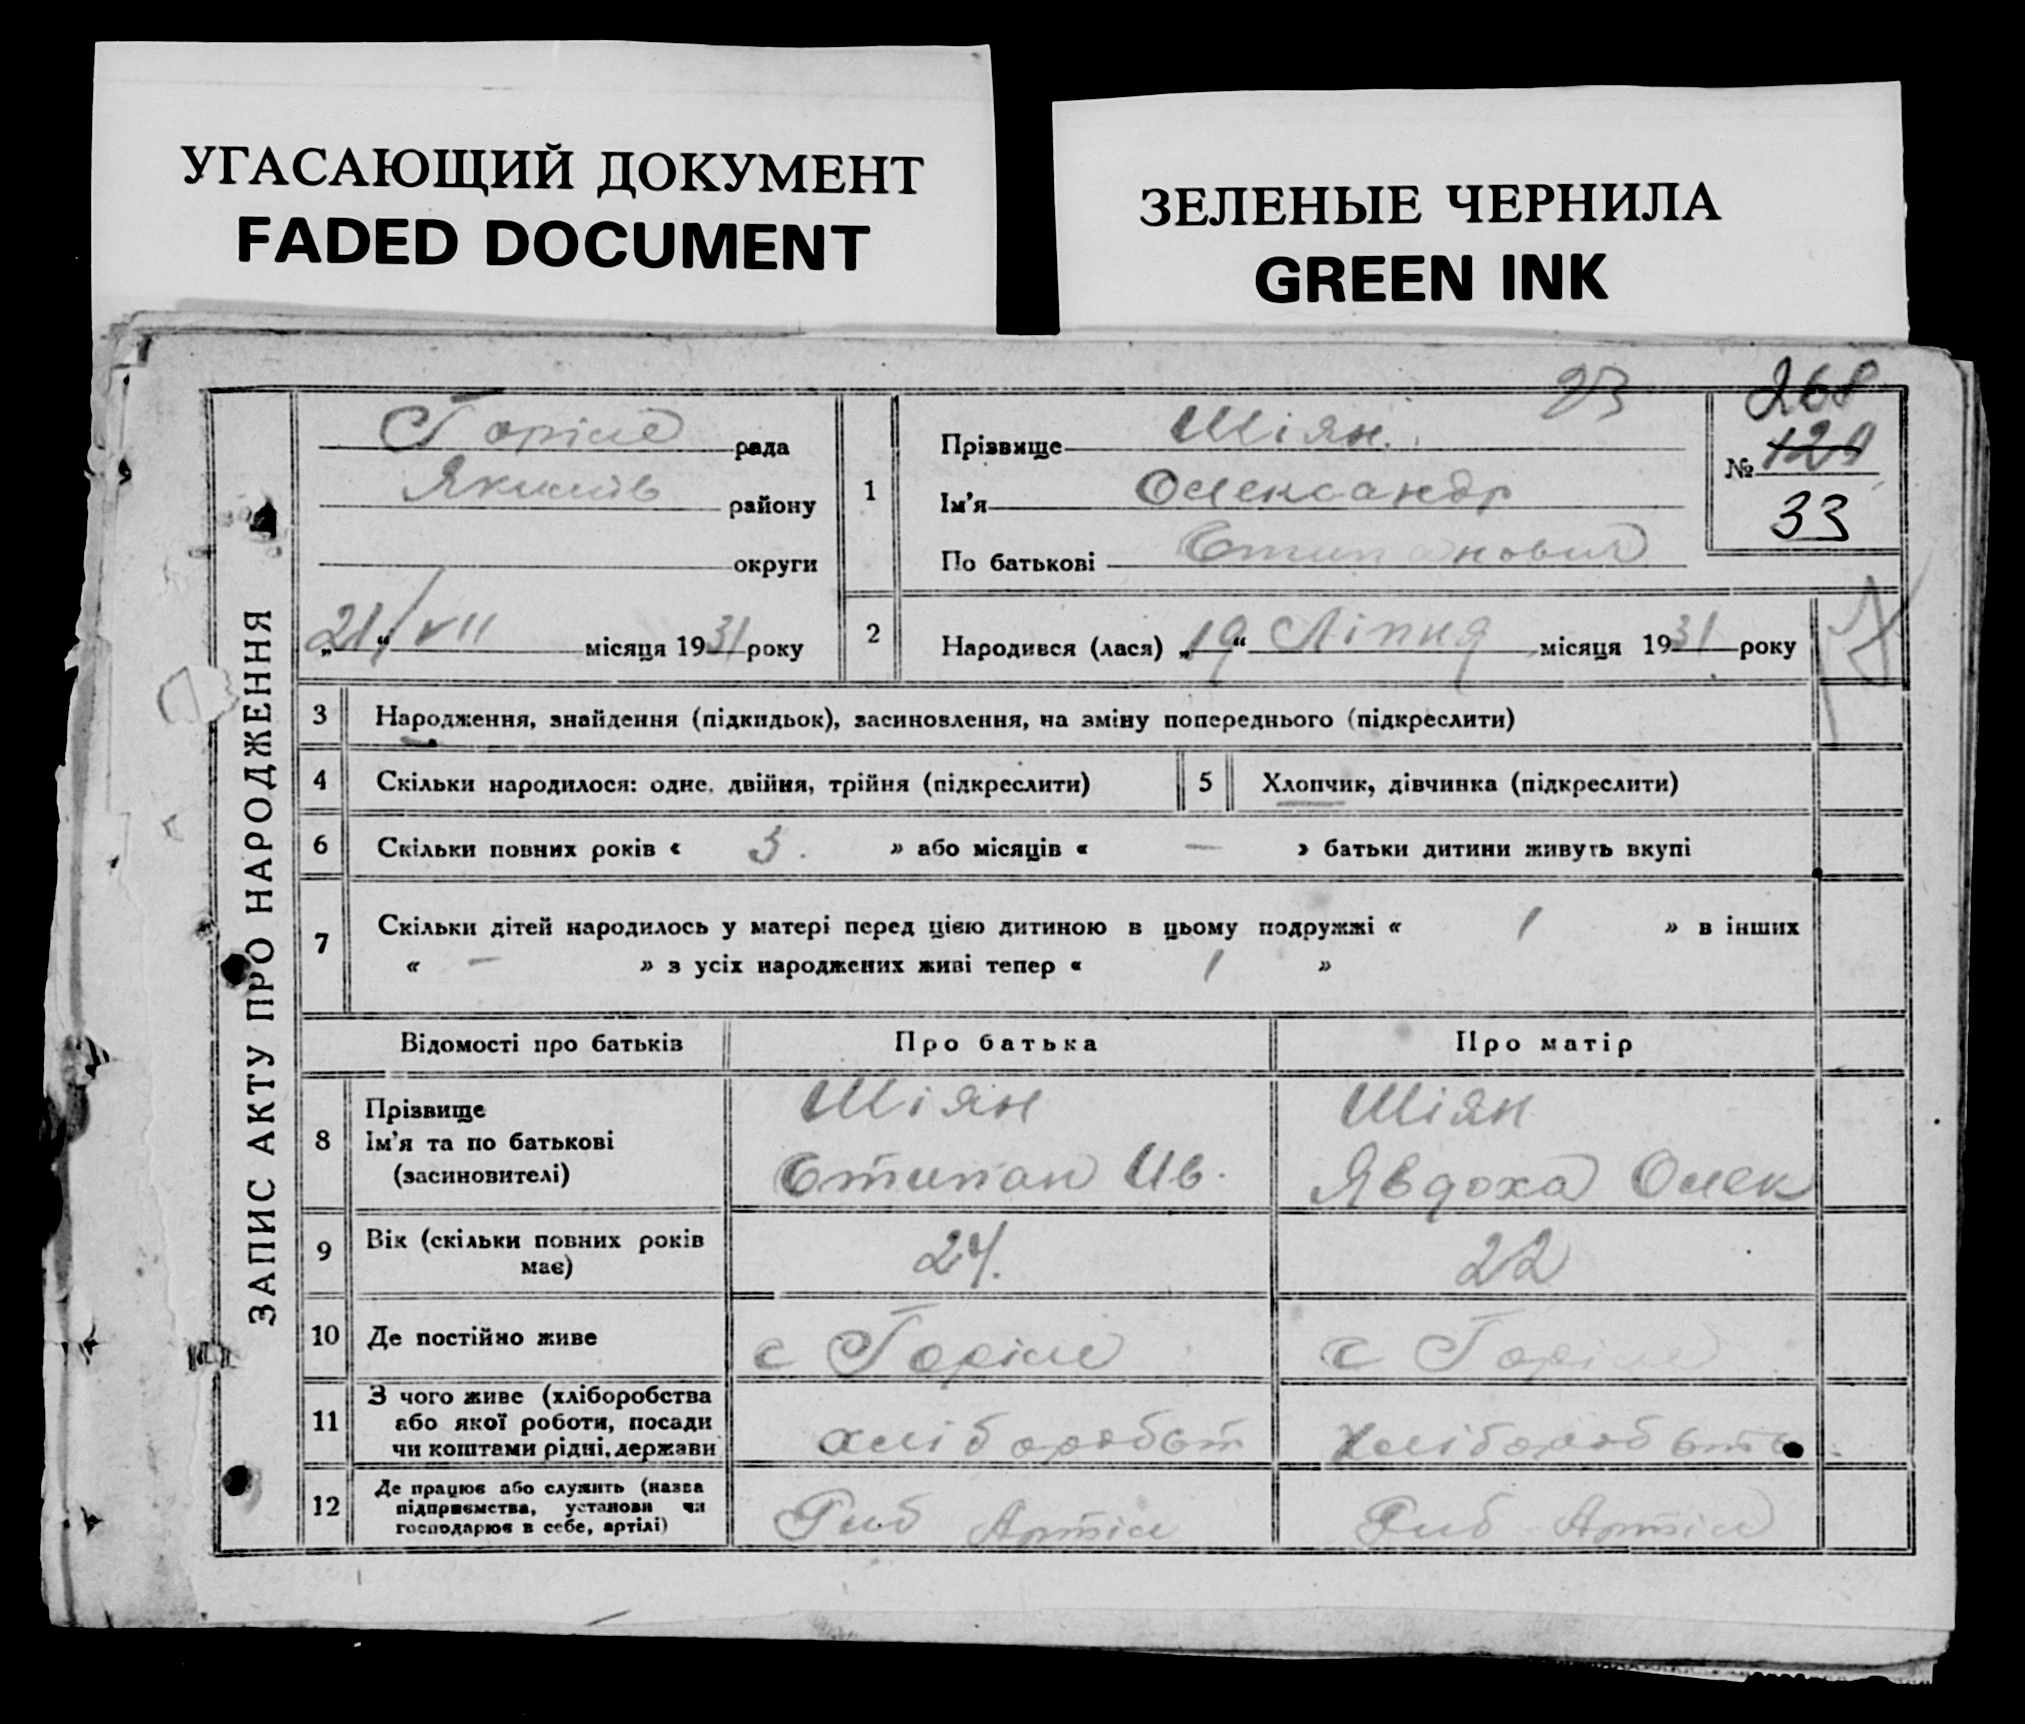 УГАСАЮЩИЙ ДОКУМЕНТ
FADED DOCUMENT
ЗЕЛЕНЫЕ ЧЕРНИЛА
GREEN INK
ЗАПИС АКТУ ПРО НАРОДЖЕННЯ
Горіле рада
району
округи
„21/“ VII місяця 1931 року
23
268
№ 129
33
1
Прізвище Шіян.
Ім'я Олександр
По батькові Стипанович
2 Народився (лася) „19“ Ліпня місяця 1931 року
3 Народження, знайдення (підкидьок), засиновлення, на зміну попереднього (підкреслити)
4 Скільки народилося: одне, двійня, трійня (підкреслити) 5 Хлопчик, дівчинка (підкреслити)
6 Скільки повних років « 3. » або місяців « — » батьки дитини живуть вкупі
7 Скільки дітей народилось у матері перед цією дитиною в цьому подружжі « 1 » в інших
« — » з усіх народжених живі тепер « 1 »
Відомості про батьків Про батька Про матір
8 Прізвище
Ім'я та по батькові
(засиновителі)
Шіян
Стипан Ив.
Шіян
Явдоха Олек
9 Вік (скільки повних років
має)
24.
22
10 Де постійно живе с Горіле с Горіле
11 З чого живе (хліборобства
або якої роботи, посади
чи коштами рідні, держави
хлібороб
12 Де працює або служить (назва
підприємства, установи чи
господарює в себе, артілі)
Риб Артіл Риб Артіл